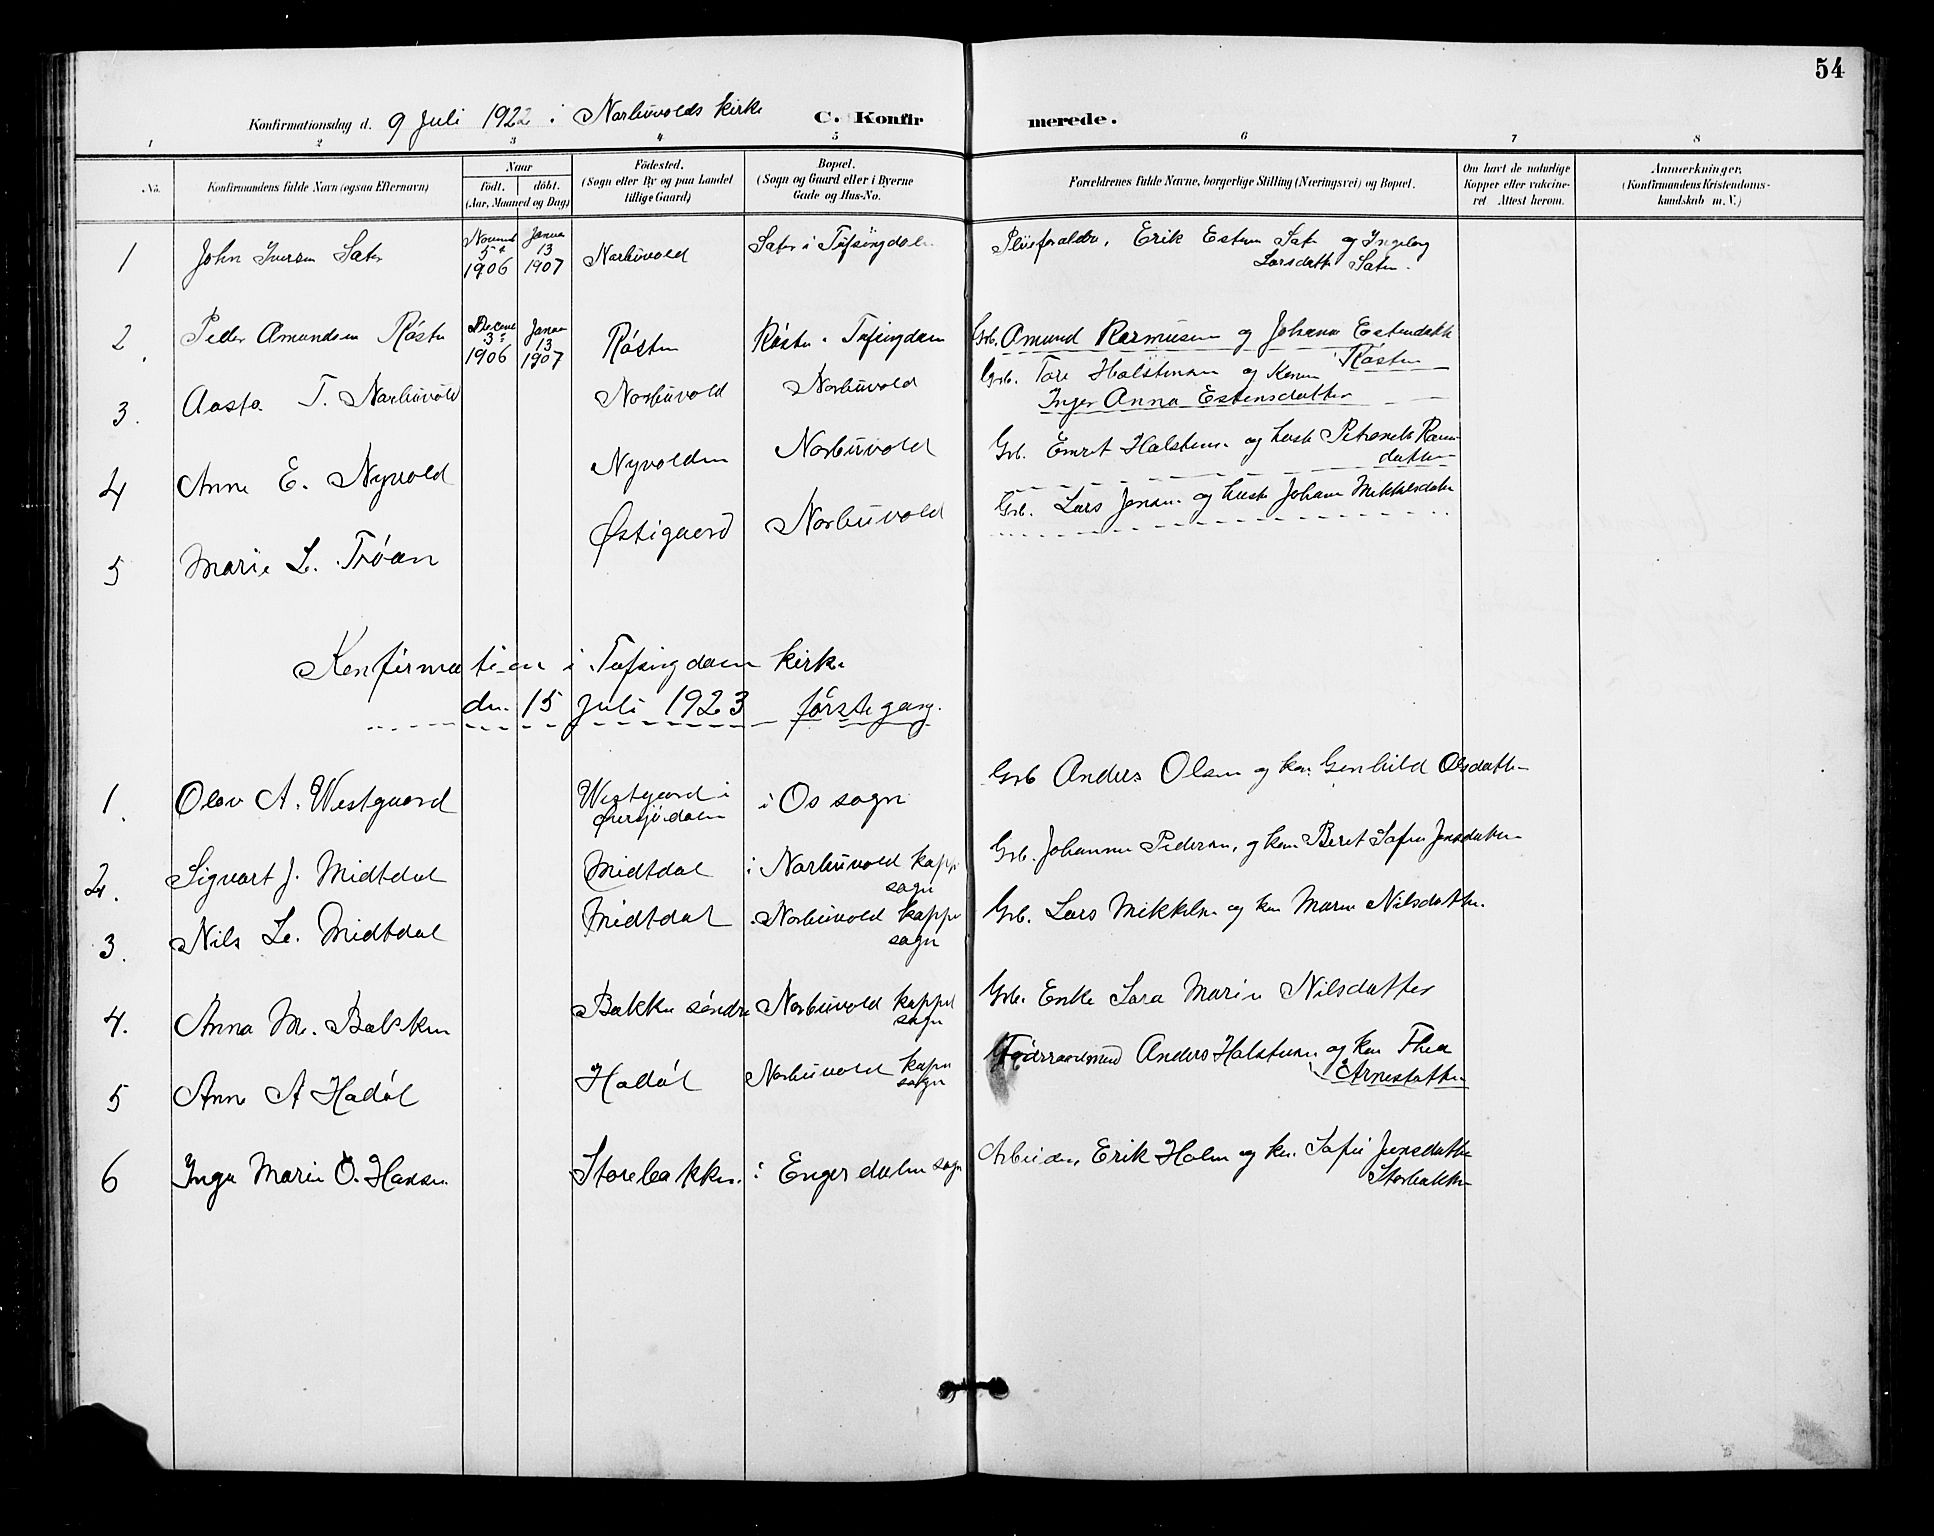 54
Konfirmationsdag d. 9 Juli 1922 i Narbuvolds kirke C. Konfir merede.
1 2 3 4 5 6 7 8
No. Konfirmandens fulde Navn (ogsaa Efternavn) Naar født. døbt. (Aar, Maaned og Dag) Födested. (Sogn eller By og paa Landet tillige Gaard) Bopæl. (Sogn og Gaard eller i Byerne Gade og Hus-No. Forældrenes fulde Navne, borgerlige Stilling (Næringsvei) og Bopæl. Om havt de naturlige Kopper eller vakcineret Attest herom. Anmærkninger. (Konfirmandens Kristendomskundskab m. V.)
1 John Iversen Sæter 1906 13 1907 Narbuvold Sæter i Tufsingdalen Pleieforældre, Erik Estensen Sæter og Ingeborg
Larsdatter Sæter.
2. Peder Amundsen Røsten 3 1906 13 1907 Røsten Røsten Tufsingdalen Grb. Amund Rasmussen og Johanna Estensdatter
Røsten
3. Aasta T. Narbuvold Narbuvold Narbuvold Grb. Tore Halstensen og Konen
Inger Anna Estensdatter
4 Anne E. Nyvold Nyvolden Narbuvold Grb. Emret Halstensen og hust
datter
5 Marie L. Trøan Østigaard Narbuvold Grb. Lars Jensen og hust Johane Mikkelsdatter
Konfirmation i Tufsingdalen kirke
den 15 Juli 1923 første gang.
1. Olav A. Westgaard Westgaard i
Øversjødalen i Os sogn Grb Anders Olsen og kone Gunhild Olsdatter
2. Sigvart J. Midtdal Midtdal i Narbuvold kapp
sogn Grb. Johannes Pedersen, og kone Beret Sofie Jensdatter
3. Nils L. Midtdal Midtdal Narbuvold kappel
sogn Grb. Lars Mikkelsen og kone Maren Nilsdatter.
4. Anna M. Bakken Bakken søndre Narbuvold kappel
sogn Grb. Enke Sara Marie Nilsdatter
5 Anne A Hadøl Hadøl Narbuvold kapel
sogn Føderraadsmand Anders Halstensen og kone Thea
Arnesdatter
6 Inga Marie O. Hansen Storebakken i Engerdalen sogn Arbeider, Erik Holm og kone Sofie Jensdatter
Storbakken